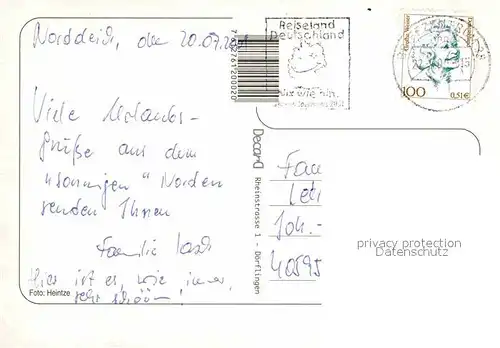 Norddeich, den 20.07.2001
Viele Urlaubs-
grüße aus dem
"sonnigen" Norden
senden Ihnen
Familie
Hier ist es, wie immer,
sehr schön!
Foto: Heintze
7612761200020
Decard
Rheinstrasse 1 - Dörflingen
Reiseland
Deutschland
nix wie hin.
100
0,51€
Fam
Joh.-
40595
privacy protection
Datenschutz